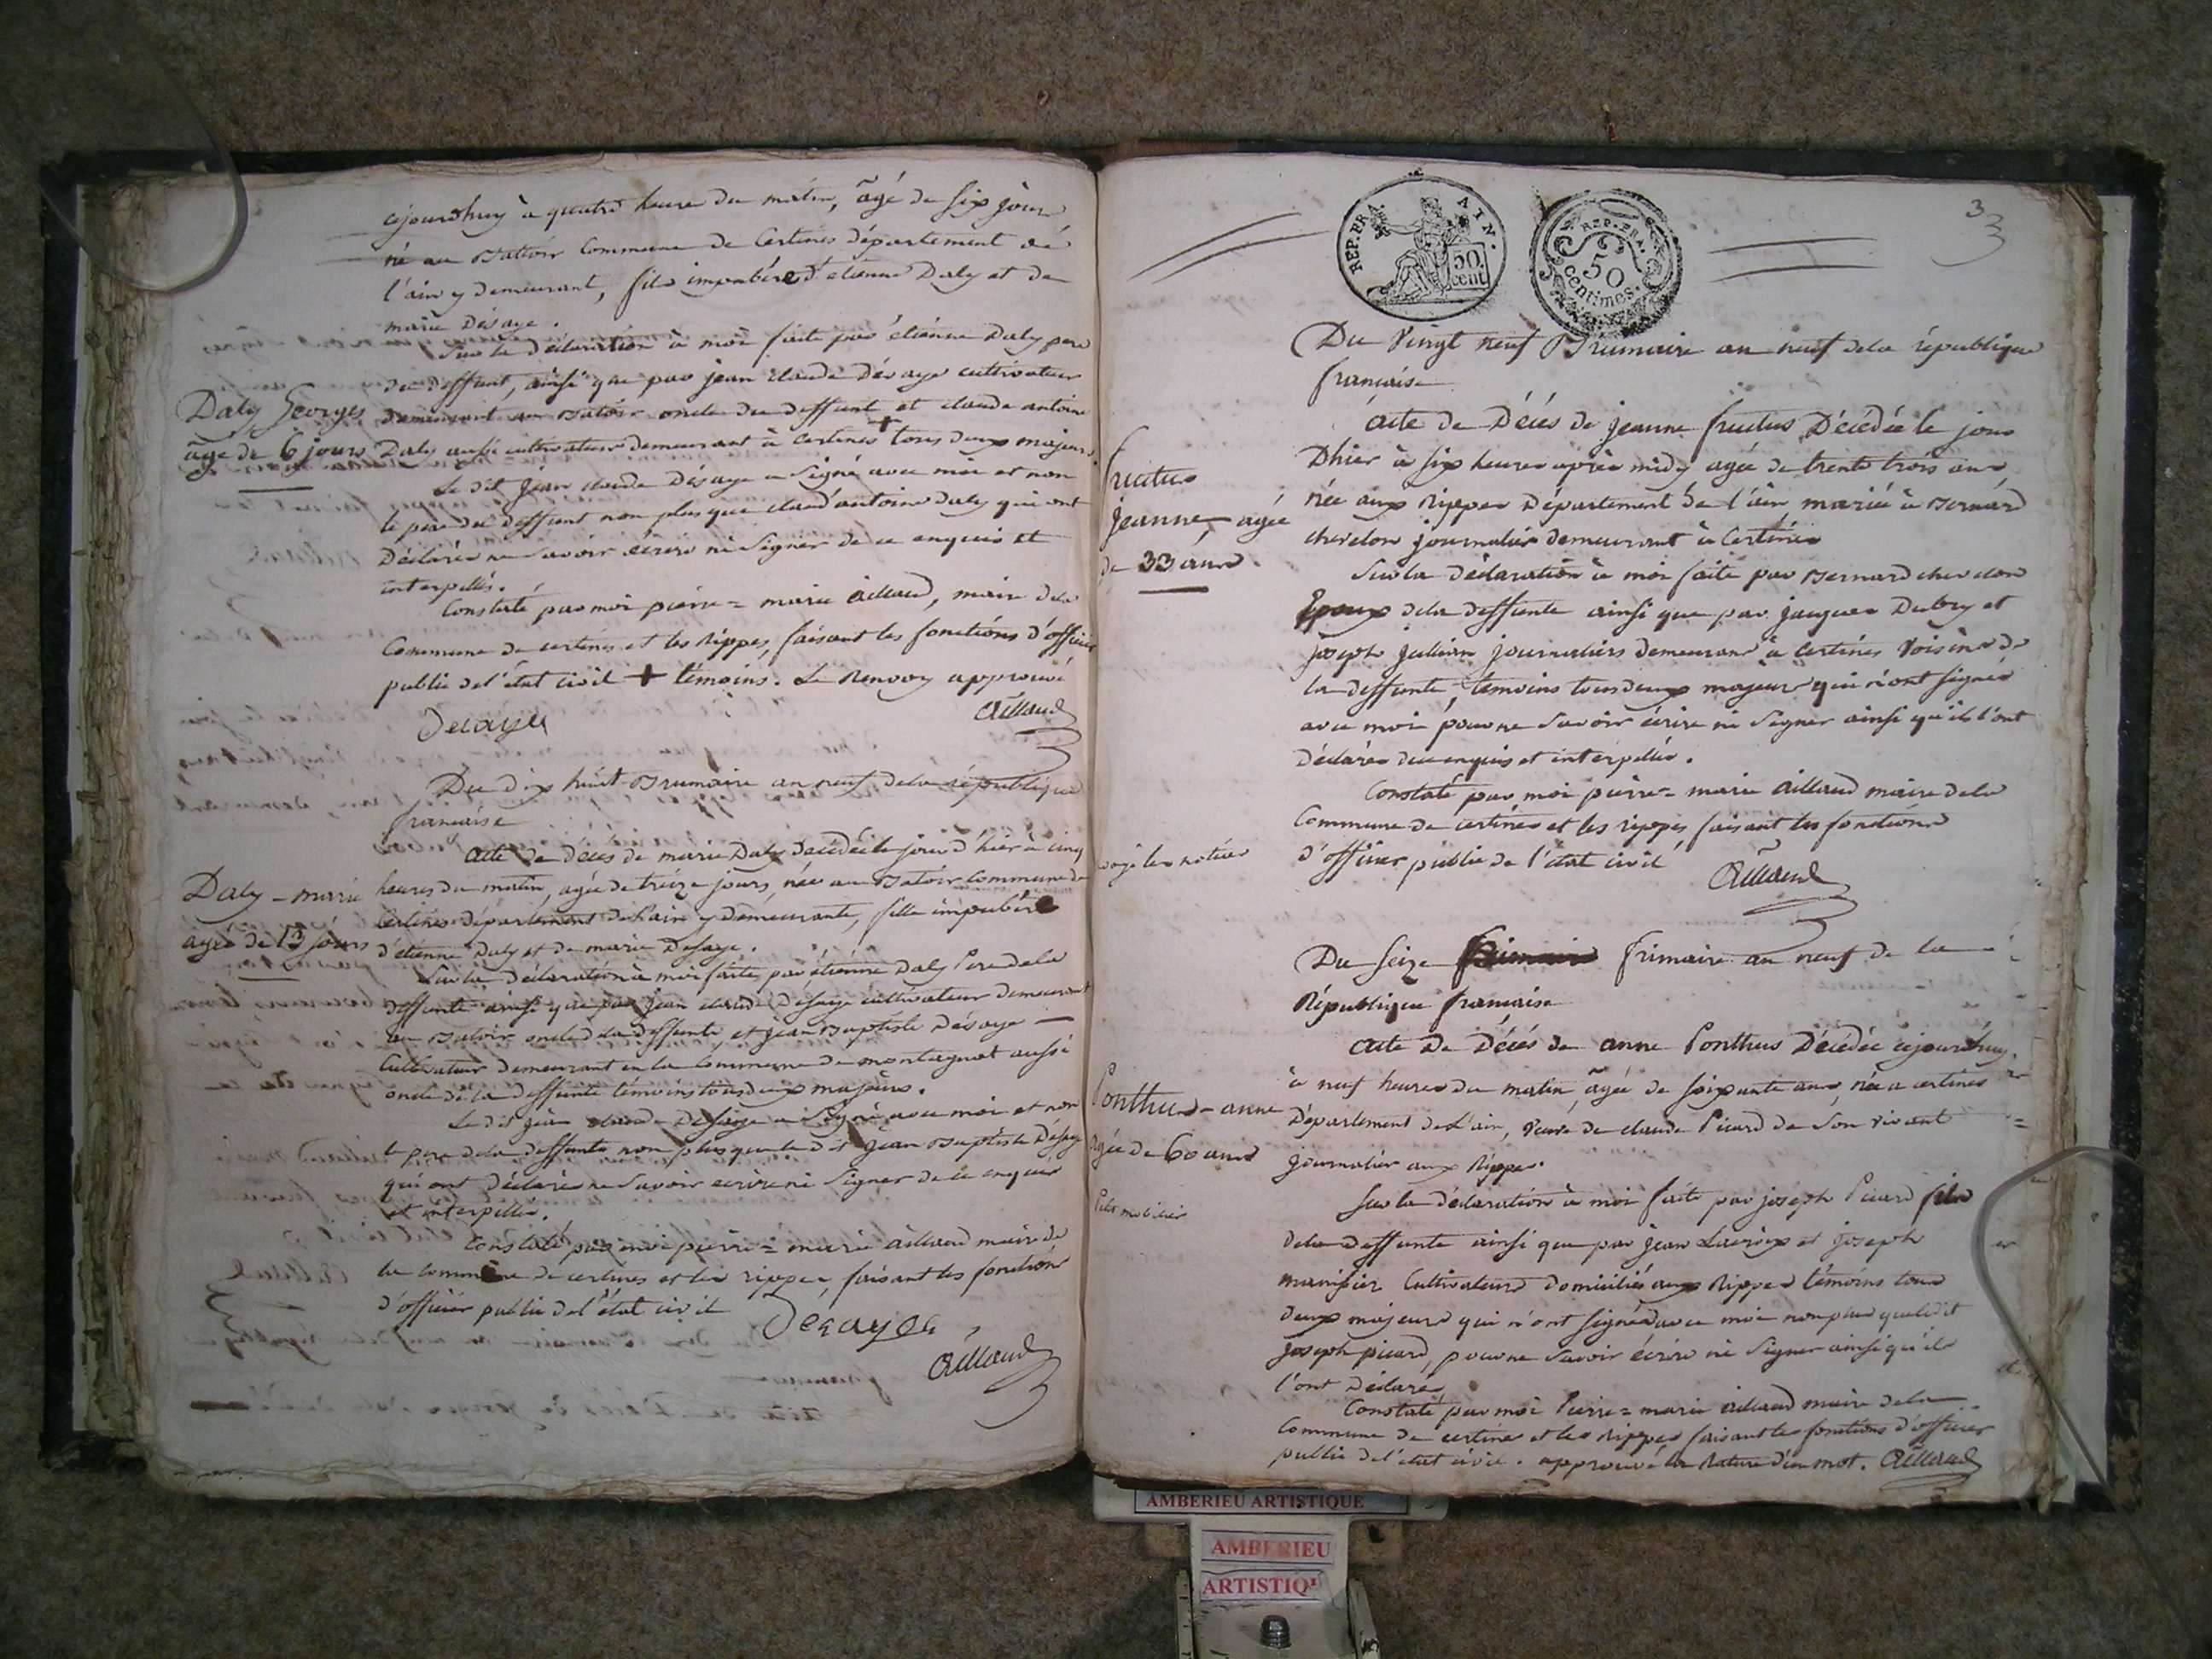 cejourdhuy à quatre heure du matin, âgé de six jour
né au Battoir Commune de Certines département de
l'ain y demeurant, fils impubere d'etienne Daly et de
marie Désaye.
Sur la déclaration à moi faite par étienne Daly pere
du deffunt, ainsi que par jean claude Désaye cultivateur
Daly Georges
âgé de 6 jours
demeurant au Batoir oncle du deffunt et claude antoine
Daly aussi cultivateur demeurant à Certines + tous deux majeurs.
Le dit jean claude Désaye a Signé avec moi et non
le pere du deffunt non plus que claud'antoine Daly qui ont
Déclarés ne Savoir écrire ni Signer de ce enquis et
interpellés.
Constaté par moi pierre = marie aillaud, maire dela
Commune de certines et les rippes, faisant les fonctions d'officier
public de l'état civil + témoins. Le Renvoy approuvé
Desaye
Aillaud
Du dix huit Brumaire an neuf dela république
francaise
Acte de décès de marie Daly décédée le jour d'hier à cinq
Daly - marie
agée de 13 jours
heures du matin, agée de treize jours, née au Batoir Commune de
Certines département de l'ain y demeurante, fille impubére
d'étienne Daly et de marie Desaye.
Sur la déclaration à moi faite par étienne Daly Pere dela
deffunte ainsi que par jean claude Désaye cultivateur demeurant
au Batoir oncle de la deffunte, et jean Baptiste Désaye
Cultivateur demeurant en la Commune de montagnat aussi
oncle de la deffunte témoins tous deux majeurs.
Le dit jean claude Désaye a Signé avec moi et non
le pere dela deffunte non plus que le dit jean Baptiste Désaye
qui ont déclarés ne Savoir ecrire ni Signer de ce enquis
et interpellés.
Constaté par moi pierre = marie aillaud maire de
la commune de certines et les rippes, faisant les fonctions
d'officier public de l'état civil
Desaye
Aillaud
3
REP. FRA.
ATN.
50
cent
REP. FRA.
50
centimes.
Du Vingt neuf Brumaire an neuf dela république
francaise
Acte de Décès de jeanne fructus Décédée le jour
fructus
jeanne, agée
de 33 ans
D'hier à six heures après midy agée de trente trois ans,
née aux Rippes Département de l'ain mariée à Bernard
chevelon journalier demeurant à Certines
Sur la déclaration à moi faite par Bernard chevelon
Epoux dela deffunte ainsi que par jacques Dubry et
joseph jullian journaliers demeurans à Certines Voisins de
la deffunte, témoins tous deux majeur qui n'ont signés
avec moi pour ne Savoir écrire ni Signer ainsi qu'ils l'ont
Déclarés de ce enquis et interpellés.
Constaté par moi pierre = marie aillaud maire dela
Commune de certines et les rippes faisant les fonctions
d'officier public de l'état civil
Aillaud
Du Seize frimaire an neuf de la
République francaise
Acte De Décès de anne Ponthus Décédée cejourd'huy
Ponthus - anne
agée de 60 ans
à neuf heures du matin, âgée de soixante ans, née a certines
Département de L'ain, Veuve de claude Picard de Son vivant
journalier aux Rippes.
Petit mobilier
Sur la déclaration à moi faite par joseph Picard fils
dela deffunte ainsi que par jean Lacroix et joseph
Cultivateurs Domiciliés aux Rippes témoins tous
deux majeurs qui n'ont signés avec moi non plus que ledit
joseph picard, pour ne Savoir écrire ni Signer ainsi qu'ils
l'ont Déclaré
Constaté par moi Pierre = marie aillaud maire dela
Commune de certines et les Rippes faisant les fonctions d'officier
public de l'état civil. approuvé la Rature d'un mot. Aillaud
AMBERIEU ARTISTIQUE
AMBERIEU
ARTISTIQU